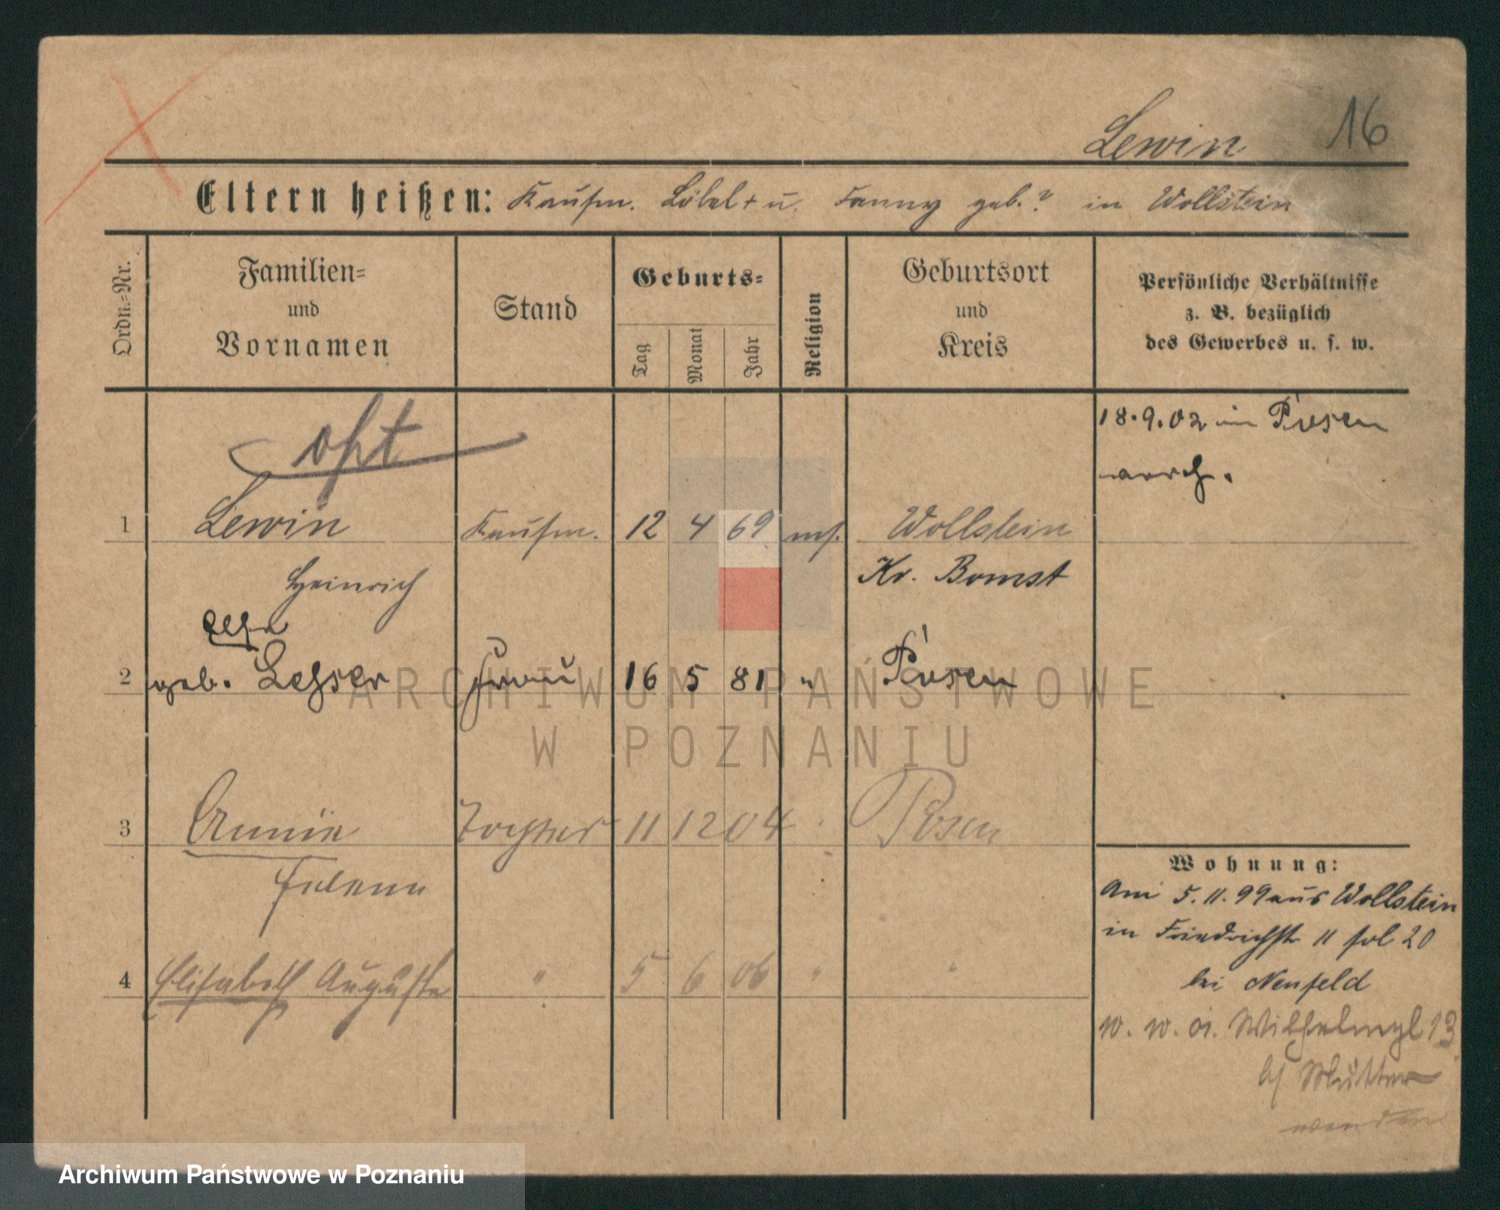 Lewin 16
Eltern heißen: Kaufm. Löbel + u. Fanny geb.? in Wollstein
Ordn.-Nr.
Familien-
und
Vornamen
Stand
Geburts-
Tag
Monat
Jahr
Religion
Geburtsort
und
Kreis
Persönliche Verhältnisse
z. B. bezüglich
des Gewerbes u. s. w.
18.9.02 in Posen
1 Lewin Kaufm. 12 4 69 mos. Wollstein
Heinrich Kr. Bomst
2 geb. Lehser Frau 16 5 81 " Posen
3 Annie Tochter 11 12 04 Posen
Helene
4 Elisabeth Auguste " 5 6 06 " "
Wohnung:
Am 5.11.99 aus Wollstein
in Friedrichstr 11 fol 20
bei Neufeld
Wilhelmpl 13
b/ Mutter
wenden
ARCHIWUM PAŃSTWOWE
W POZNANIU
Archiwum Państwowe w Poznaniu